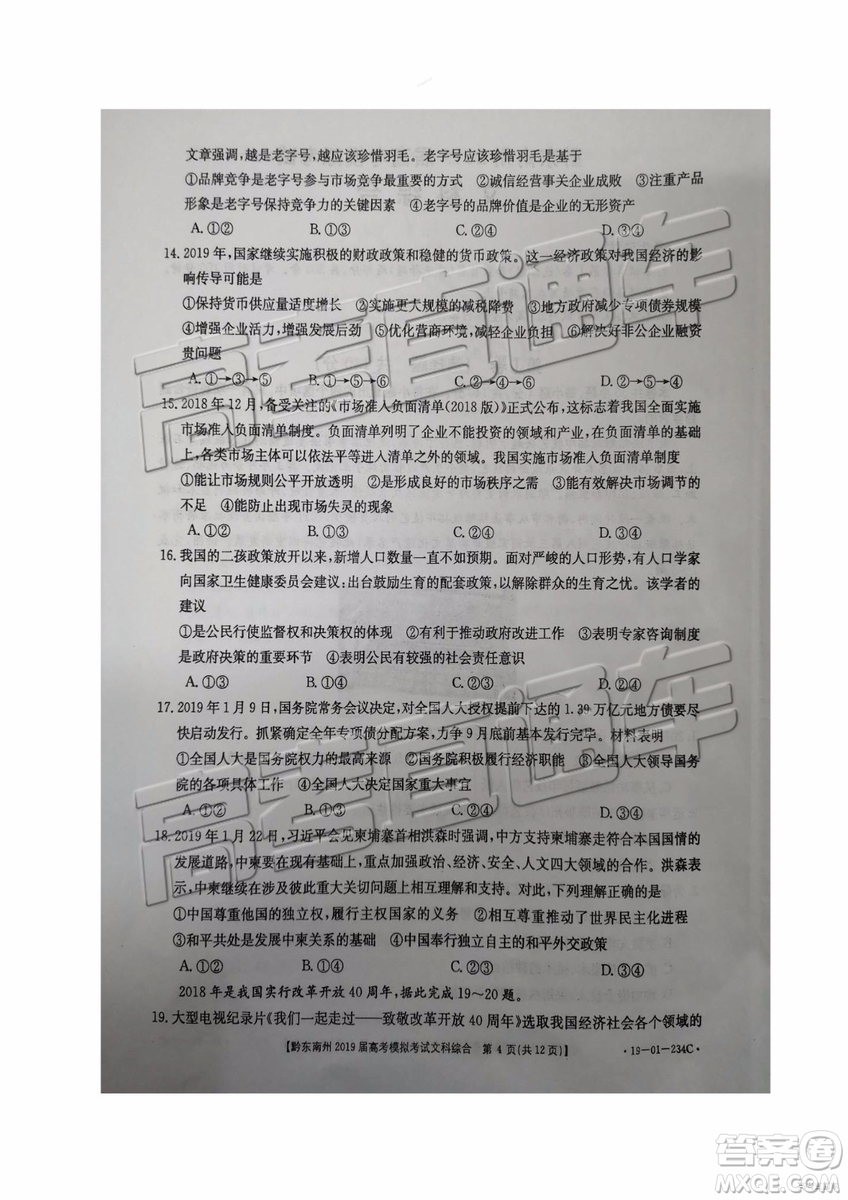 文章强调,越是老字号,越应该珍惜羽毛。老字号应该珍惜羽毛是基于
①品牌竞争是老字号参与市场竞争最重要的方式 ②诚信经营事关企业成败 ③注重产品
形象是老字号保持竞争力的关键因素 ④老字号的品牌价值是企业的无形资产
A.①② B.①③ C.②④ D.③④
14. 2019年,国家继续实施积极的财政政策和稳健的货币政策。这一经济政策对我国经济的影
响传导可能是
①保持货币供应量适度增长 ②实施更大规模的减税降费 ③地方政府减少专项债券规模
④增强企业活力,增强发展后劲 ⑤优化营商环境,减轻企业负担 ⑥解决好非公企业融资
贵问题
A.①→③→⑤ B.①→⑤→⑥ C.②→④→⑥ D.②→⑤→④
15. 2018年12月,备受关注的《市场准入负面清单(2018版)》正式公布,这标志着我国全面实施
市场准入负面清单制度。负面清单列明了企业不能投资的领域和产业,在负面清单的基础
上,各类市场主体可以依法平等进入清单之外的领域。我国实施市场准入负面清单制度
①能让市场规则公平开放透明 ②是形成良好的市场秩序之需 ③能有效解决市场调节的
不足 ④能防止出现市场失灵的现象
A.①② B.①③ C.②④ D.③④
16. 我国的二孩政策放开以来,新增人口数量一直不如预期。面对严峻的人口形势,有人口学家
向国家卫生健康委员会建议:出台鼓励生育的配套政策,以解除群众的生育之忧。该学者的
建议
①是公民行使监督权和决策权的体现 ②有利于推动政府改进工作 ③表明专家咨询制度
是政府决策的重要环节 ④表明公民有较强的社会责任意识
A.①③ B.①④ C.②③ D.②④
17. 2019年1月9日,国务院常务会议决定,对全国人大授权提前下达的1.39万亿元地方债要尽
快启动发行。抓紧确定全年专项债分配方案,力争9月底前基本发行完毕。材料表明
①全国人大是国务院权力的最高来源 ②国务院积极履行经济职能 ③全国人大领导国务
院的各项具体工作 ④全国人大决定国家重大事宜
A.①② B.①③ C.②④ D.③④
18. 2019年1月22日,习近平会见柬埔寨首相洪森时强调,中方支持柬埔寨走符合本国国情的
发展道路,中柬要在现有基础上,重点加强政治、经济、安全、人文四大领域的合作。洪森表
示,中柬继续在涉及彼此重大关切问题上相互理解和支持。对此,下列理解正确的是
①中国尊重他国的独立权,履行主权国家的义务 ②相互尊重推动了世界民主化进程
③和平共处是发展中柬关系的基石 ④中国奉行独立自主的和平外交政策
A.①② B.①④ C.②③ D.③④
2018年是我国实行改革开放40周年,据此完成19~20题。
19. 大型电视纪录片《我们一起走过——致敬改革开放40周年》选取我国经济社会各个领域的
【黔东南州2019届高考模拟考试文科综合 第4页(共12页)】 ·19-01-234C·
高考直通车
高考直通车
答案圈
MXQE.COM